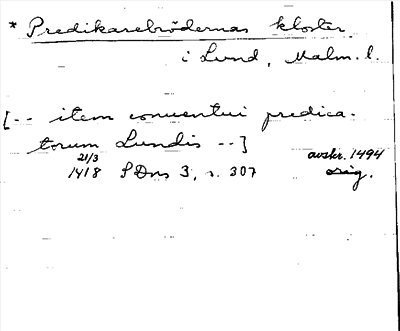 * Predikarebrödernas kloster
i Lund, Malm. l.
[-- item conuentui predica-
torum Lundis --]
21/3 avskr. 1494
1418 SDns 3, s. 307 orig.